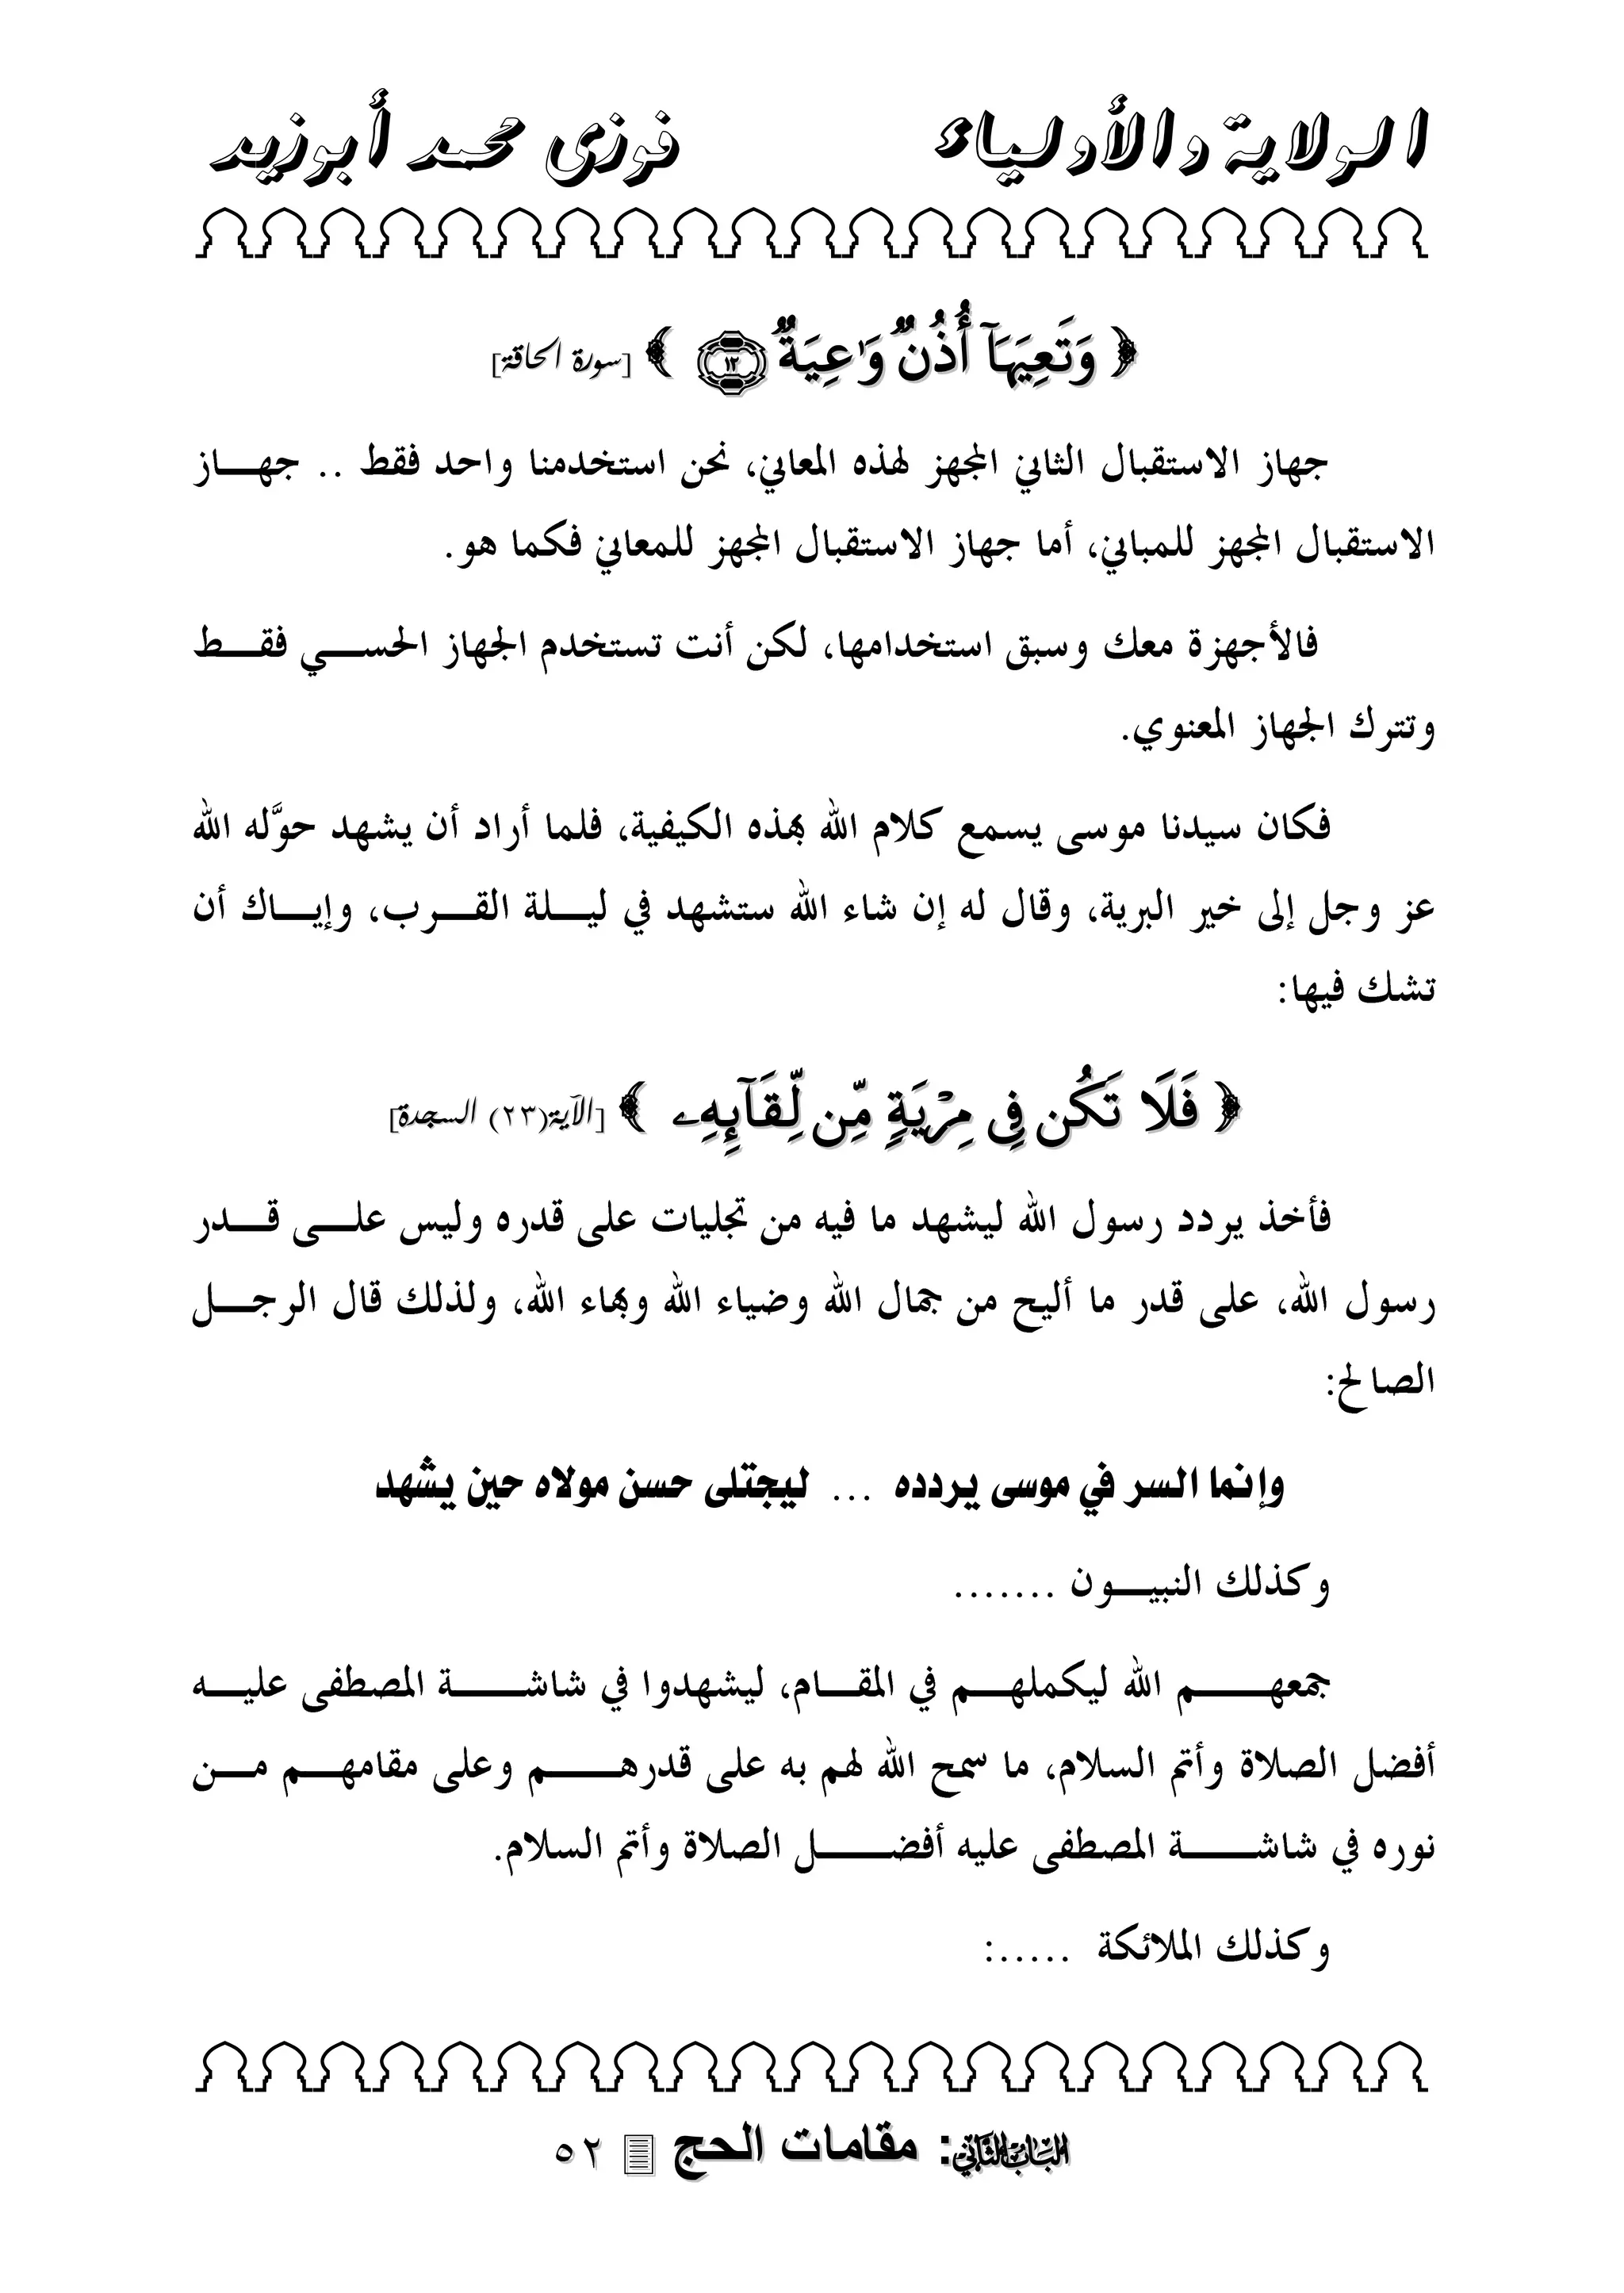 الولاية والأولياء فوزى محمد أبوزيد
﴿ وَتَعِيَهَآ أُذُنٌ وَٰعِيَةٌ ١٢ ﴾ [سورة الحاقة]
جهاز الاستقبال الثاني المجهز لهذه المعاني، نحن استخدمنا واحد فقط .. جهـــاز
الاستقبال المجهز للمباني، أما جهاز الاستقبال المجهز للمعاني فكما هو.
فالأجهزة معك وسبق استخدامها، لكن أنت تستخدم الجهاز الحســـي فقـــط
وتترك الجهاز المعنوي.
فكان سيدنا موسى يسمع كلام الله بهذه الكيفية، فلما أراد أن يشهد حوَّله الله
عز وجل إلى خير البرية، وقال له إن شاء الله ستشهد في ليـــلة القـــرب، وإيـــاك أن
تشك فيها:
﴿ فَلَا تَكُن فِى مِرْيَةٍ مِّن لِّقَآئِهِۦ ﴾ [الآية(٢٣) السجدة]
فأخذ يردد رسول الله ليشهد ما فيه من تجليات على قدره وليس علـــى قـــدر
رسول الله، على قدر ما أليح من جمال الله وضياء الله وبهاء الله، ولذلك قال الرجـــل
الصالح:
وإنما السر في موسى يردده ... ليجتلى حسن مولاه حين يشهد
وكذلك النبيـــون .......
جمعهـــــم الله ليكملهـــم في المقـــام، ليشهدوا في شاشـــــة المصطفى عليـــه
أفضل الصلاة وأتم السلام، ما سمح الله لهم به على قدرهـــــم وعلى مقامهـــم مـــن
نوره في شاشـــــة المصطفى عليه أفضـــــل الصلاة وأتم السلام.
وكذلك الملائكة .....:
الباب الثاني: مقامات الحج ٥٢